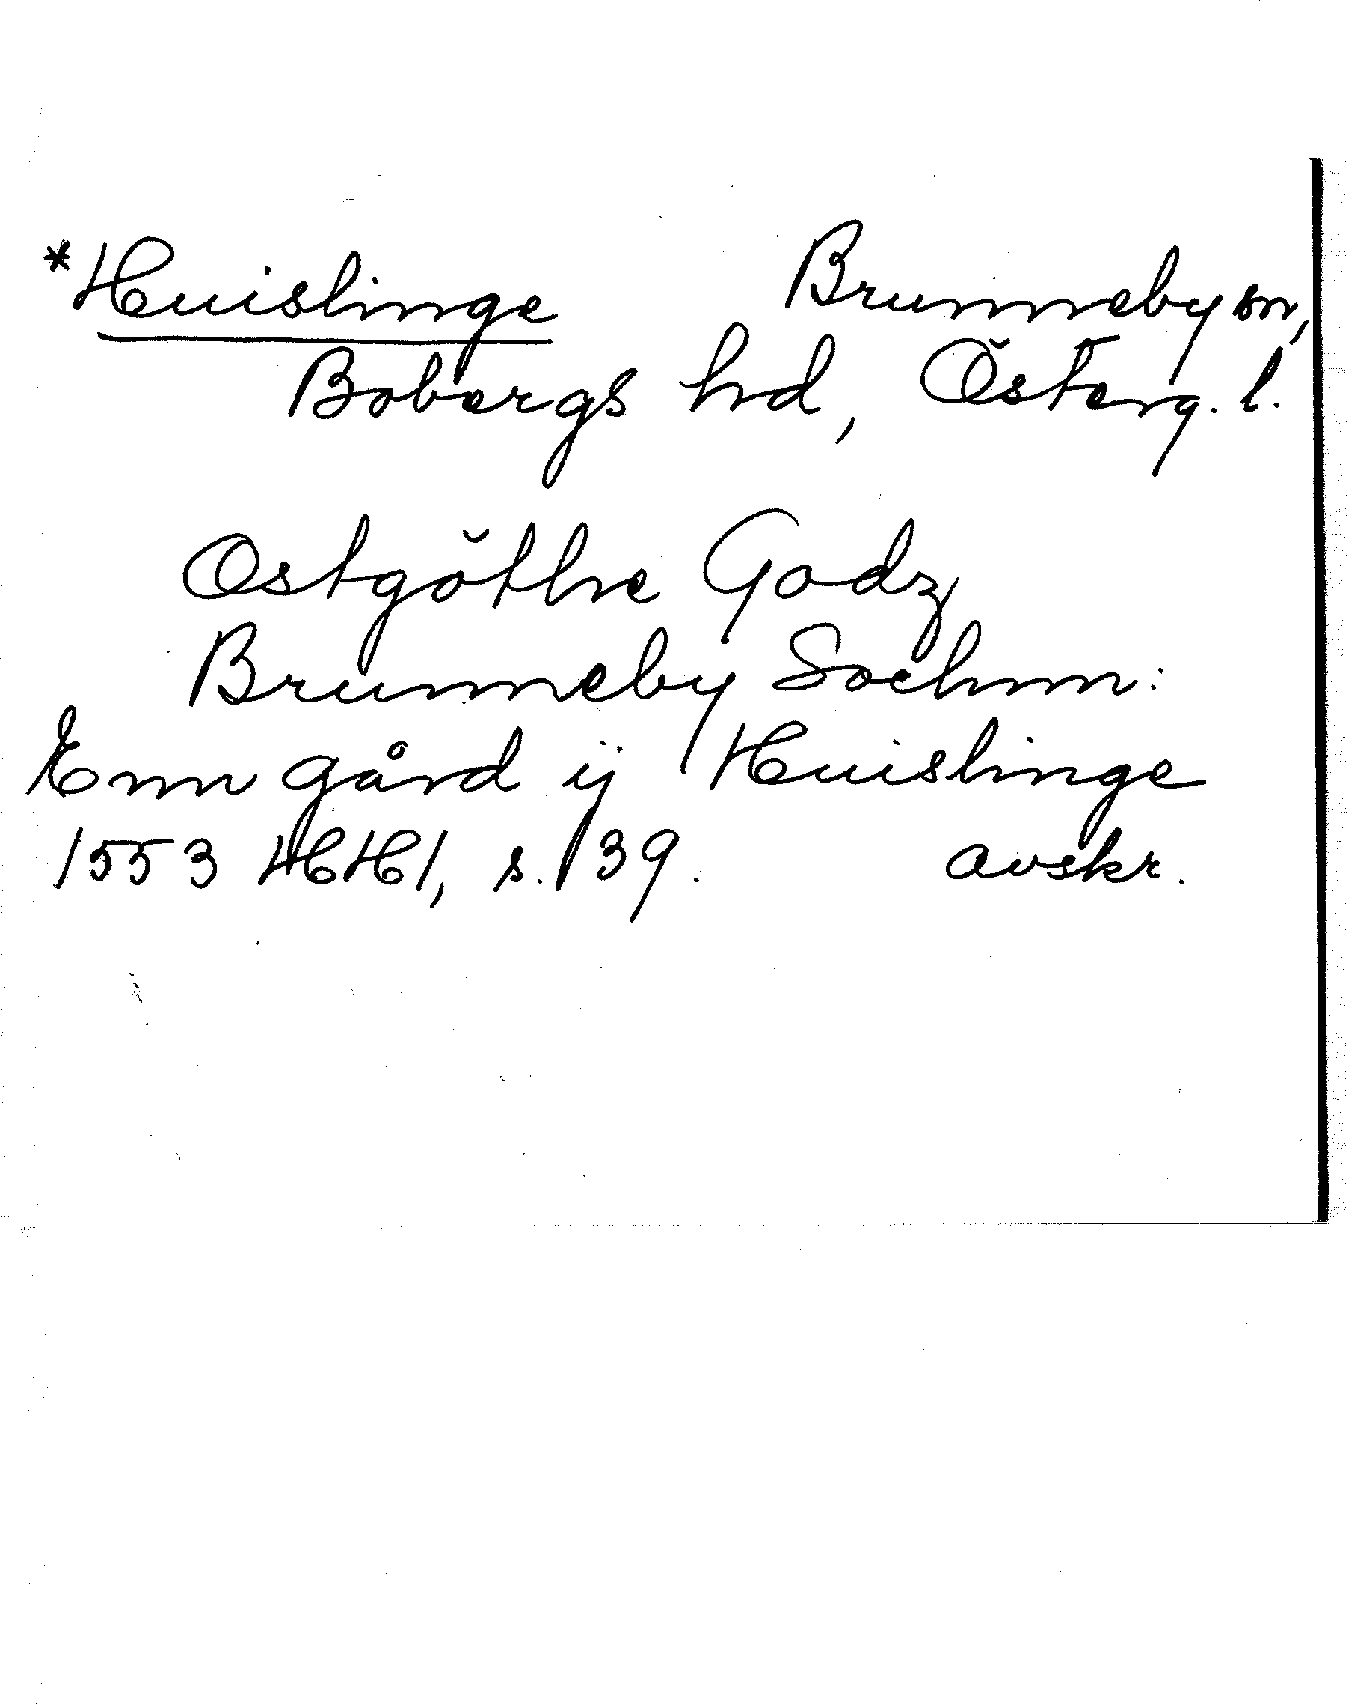 *Huislinge Brunneby sn,
Bobergs hd, Österg. l.
Ostgöthe Godz
Brunneby Sochnn:
Enn gård ij Huislinge
1553 HH1, s. 139. avskr.